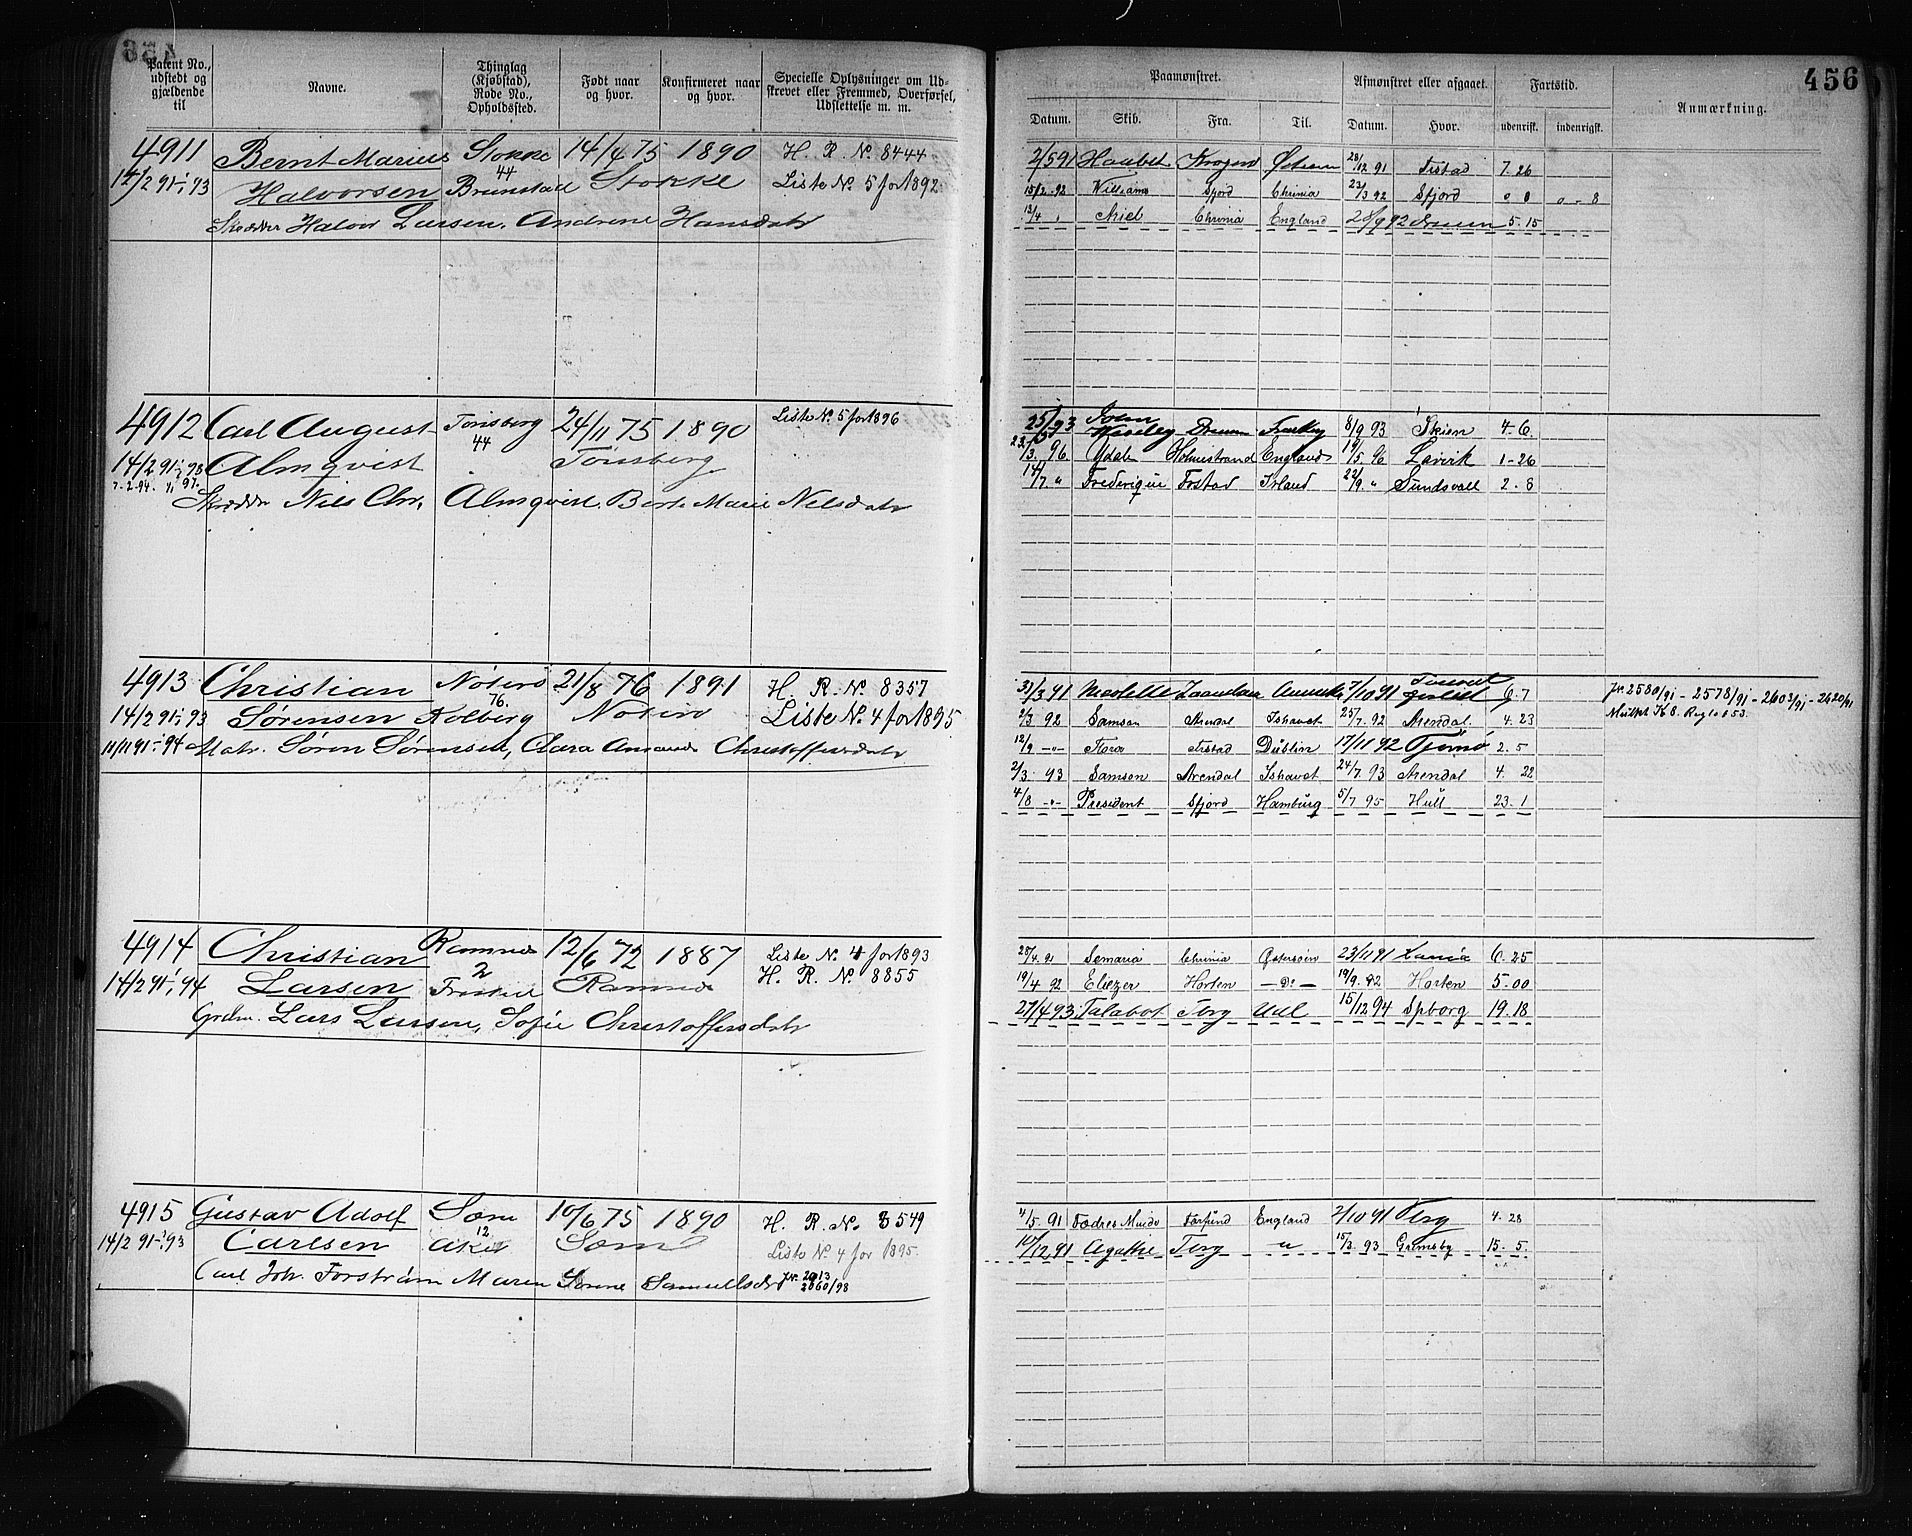 456
Patent No., udstedt og gjældende til
Navne.
Thinglag (Kjøbstad), Rode No., Opholdssted.
Født naar og hvor.
Konfirmeret naar og hvor.
Specielle Oplysninger om Udskrevet eller Fremmed, Overførsel, Udslettelse m. m.
Paamønstret.
Afmønstret eller afgaaet.
Fartstid.
Anmærkning.
Datum. Skib. Fra. Til. Datum. Hvor. udenrisk. indenrigsk.
4911 Bernt Marius Stokke 14/4 75 1890 H. R. No. 8444
14/2 91-1/1 93 Halvorsen 44 Brunstad Stokke Liste No. 5 for 1892
Skrædder Halvor Larsen, Andrine Hansdatr
2/5 91 Haabet 28/12 91 Frstad 7. 26
15/2. 92 Williams Sfjord Chrinia 23/3 92 Sfjord 0 8 0 - 8
Ariel Chrinia England 28/9 92 Drmen 5. 15
4912 Carl August Tønsberg 24/11 75 1890 Liste No. 5 for 1896
14/2 91-1/1 93 Almqvist 44 Tønsberg
7.-2.-94. 1/1 97.
Skrædder Nils Chr. Almqvist, Berte Marie Nilsdatr
93 8/9 93 Skien 4-6.
96. Ydale Holmestrand England 19/5. 96 Larvik 1-26
Frederique Frstad Irland 22/9. " Sundsvall 2. 8
4913 Christian Nøterø 21/8 76 1891 H. R. No. 8357
14/2 91-1/1 93 Sørensen 76. Kolberg Nøterø Liste No. 4 for 1895
11/11 91-1/1 94 Matr. Søren Sørensen, Clara Amanda Christoffersdatr
31/3 91 Nicolette Zaandam 7/10 91 6. 7
Jr. 2580/91 - 2578/91 - 2603/91 - 2620/91
2/3 92 Samson Arendal Ishavet 25/7. 92 Arendal. 4. 23
12/9 -"- Flora Frstad Dublin 17/11 92 Tjømø 2. 5
2/3 93 Samson Arendal Ishavet 24/7. 93 Arendal 4. 22
4/8 -"- President Sfjord Hamburg 5/7 95 Hull 23. 1
4914 Christian Ramnes 12/6 72 1887 Liste No. 4 for 1893
14/2 91-1/1 94 Larsen 2 Ramnes H. R. No. 8855
Grdm. Lars Larsen, Sofie Christoffersdatr
28/4. 91 Semaria Chrinia Østersøen 23/11 91 6. 25
19/4 92 Eliezer Horten -Do- 19/9. 92 Horten 5. 00
27/4 93 Talabot Tbrg Udl 15/12 94 Spborg 19. 18
4915 Gustav Adolf Sæm 10/6 75 1890 H. R. No. 8549
14/2 91-1/1 93 Carlsen 12 Aker Sæm Liste No. 4 for 1895.
Carl Joh. Forstrøm Maren Sørine Samuelsdr Jr. 2013 2860/98
4/5. 91 Fædres Minde Farsund England 2/10 91 Tbrg 4. 28
10/12 91 Agathe Tbrg " 15/3. 93 Grimsby 15. 5.